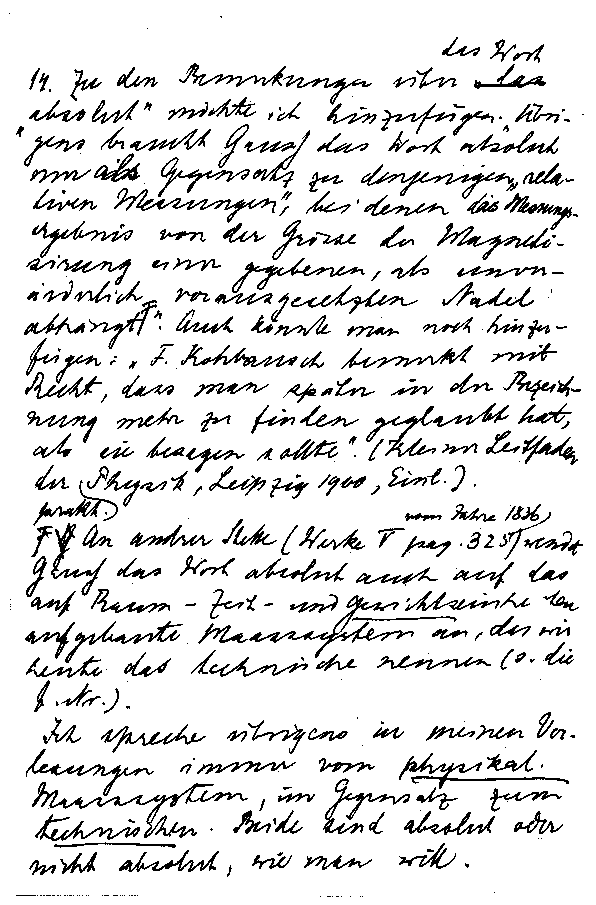 das Wort
14. Zu den Bemerkungen über „das
absolut“ möchte ich hinzufügen. Übri-
„gens braucht Gauß das Wort „absolut
nur als Gegensatz zu denjenigen „rela-
tiven Messungen“, bei denen das Messungs-
ergebnis von der Grösse der Magneti-
sirung einer gegebenen, als unver-
änderlich vorausgesetzten Nadel
abhängt“. Auch könnte man noch hinzu-
fügen: „F. Kohlrausch bemerkt mit
Recht, dass man später in der Bezeich-
nung mehr zu finden geglaubt hat,
als sie besagen sollte“. (Kleiner Leitfaden
der Physik, Leipzig 1900, Einl.).
prakt.
vom Jahre 1836
An andrer Stelle (Werke V pag. 325) wendet
Gauß das Wort absolut auch auf das
auf Raum- Zeit- und Gewichtseinheiten
aufgebaute Maasssystem an, das wir
heute das technische nennen (s. die
f. Nr.).
Ich spreche übrigens in meinen Vor-
lesungen immer vom physikal.
Maasssystem, im Gegensatz zum
technischen. Beide sind absolut oder
nicht absolut, wie man will.